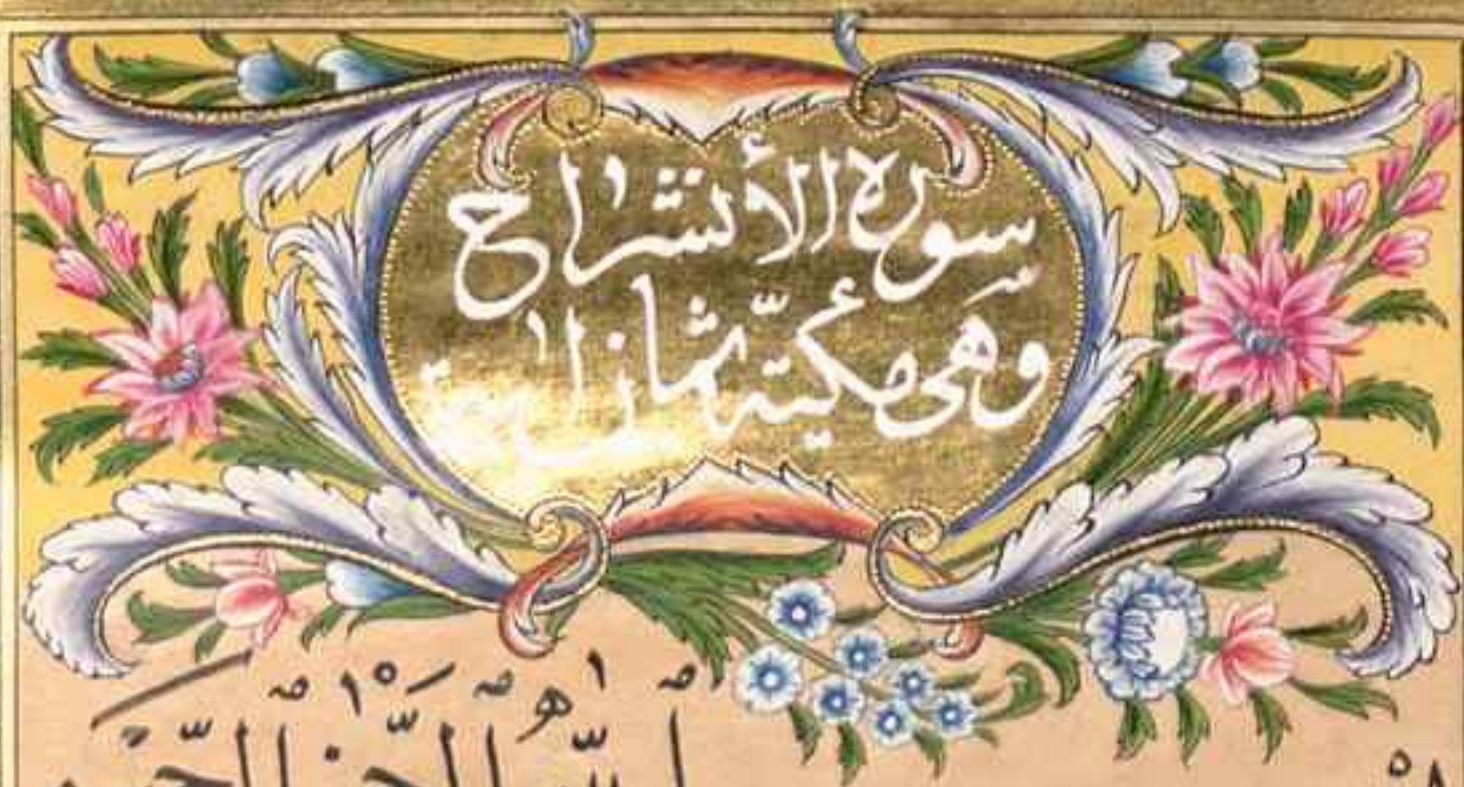 سورة الأنشراح
وهي مكيّة ثمان آية
الله الرّحمن الرّحيم